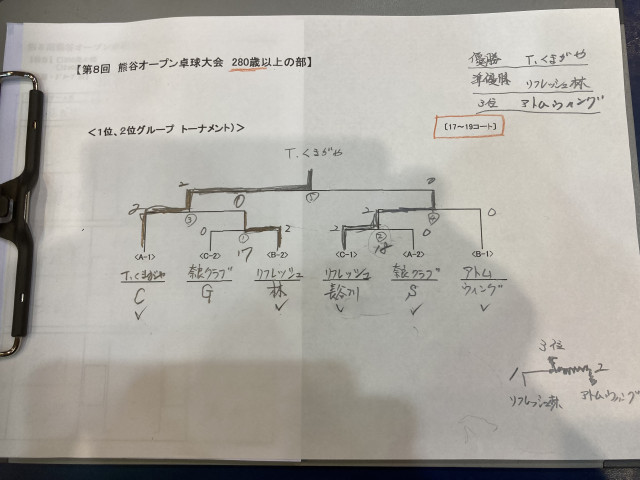 【第8回 熊谷オープン卓球大会 280歳以上の部】
優勝 T.くまがや
準優勝 リフレッシュ林
3位 アトムウィング
[17〜19コート]
<1位、2位グループ トーナメント)>
T.くまがや
2 0
2 0 2 2 0 0
③ ① ⑤ ② ④
17 18
<A-1> <C-2> <B-2> <C-1> <A-2> <B-1>
T.くまがや 奈良クラブ リフレッシュ リフレッシュ 奈良クラブ アトム
C G 林 長谷川 S ウィング
3位
1 2
リフレッシュ林 アトムウィング